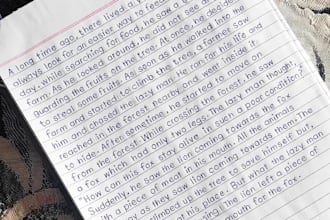 A long time ago, there lived a
always look for an easier way to fee
day, while searching for food, he saw a
farm. As he looked around, he did not see any
guarding the fruits on the tree. At once, he decided
to steal some fruits. As soon as he walked into the
farm and started to climb the tree, a farmer saw
him and chased the lazy man. He ran for his life and
reached in the forest nearby and went inside it
to hide. After sometime, he started to move on
from the forest. While crossing the forest, he saw
a fox which had only two legs. The lazy man thought,
"How can this fox stay alive in such a poor condition?"
Suddenly, he saw the lion coming towards the fox
with a piece of meat in his mouth. All the animals
away as they saw lion coming towards them. The
climbed up the tree to save himself but
at his place. But what the lazy man
The lion left a piece of
mouth for the fox.